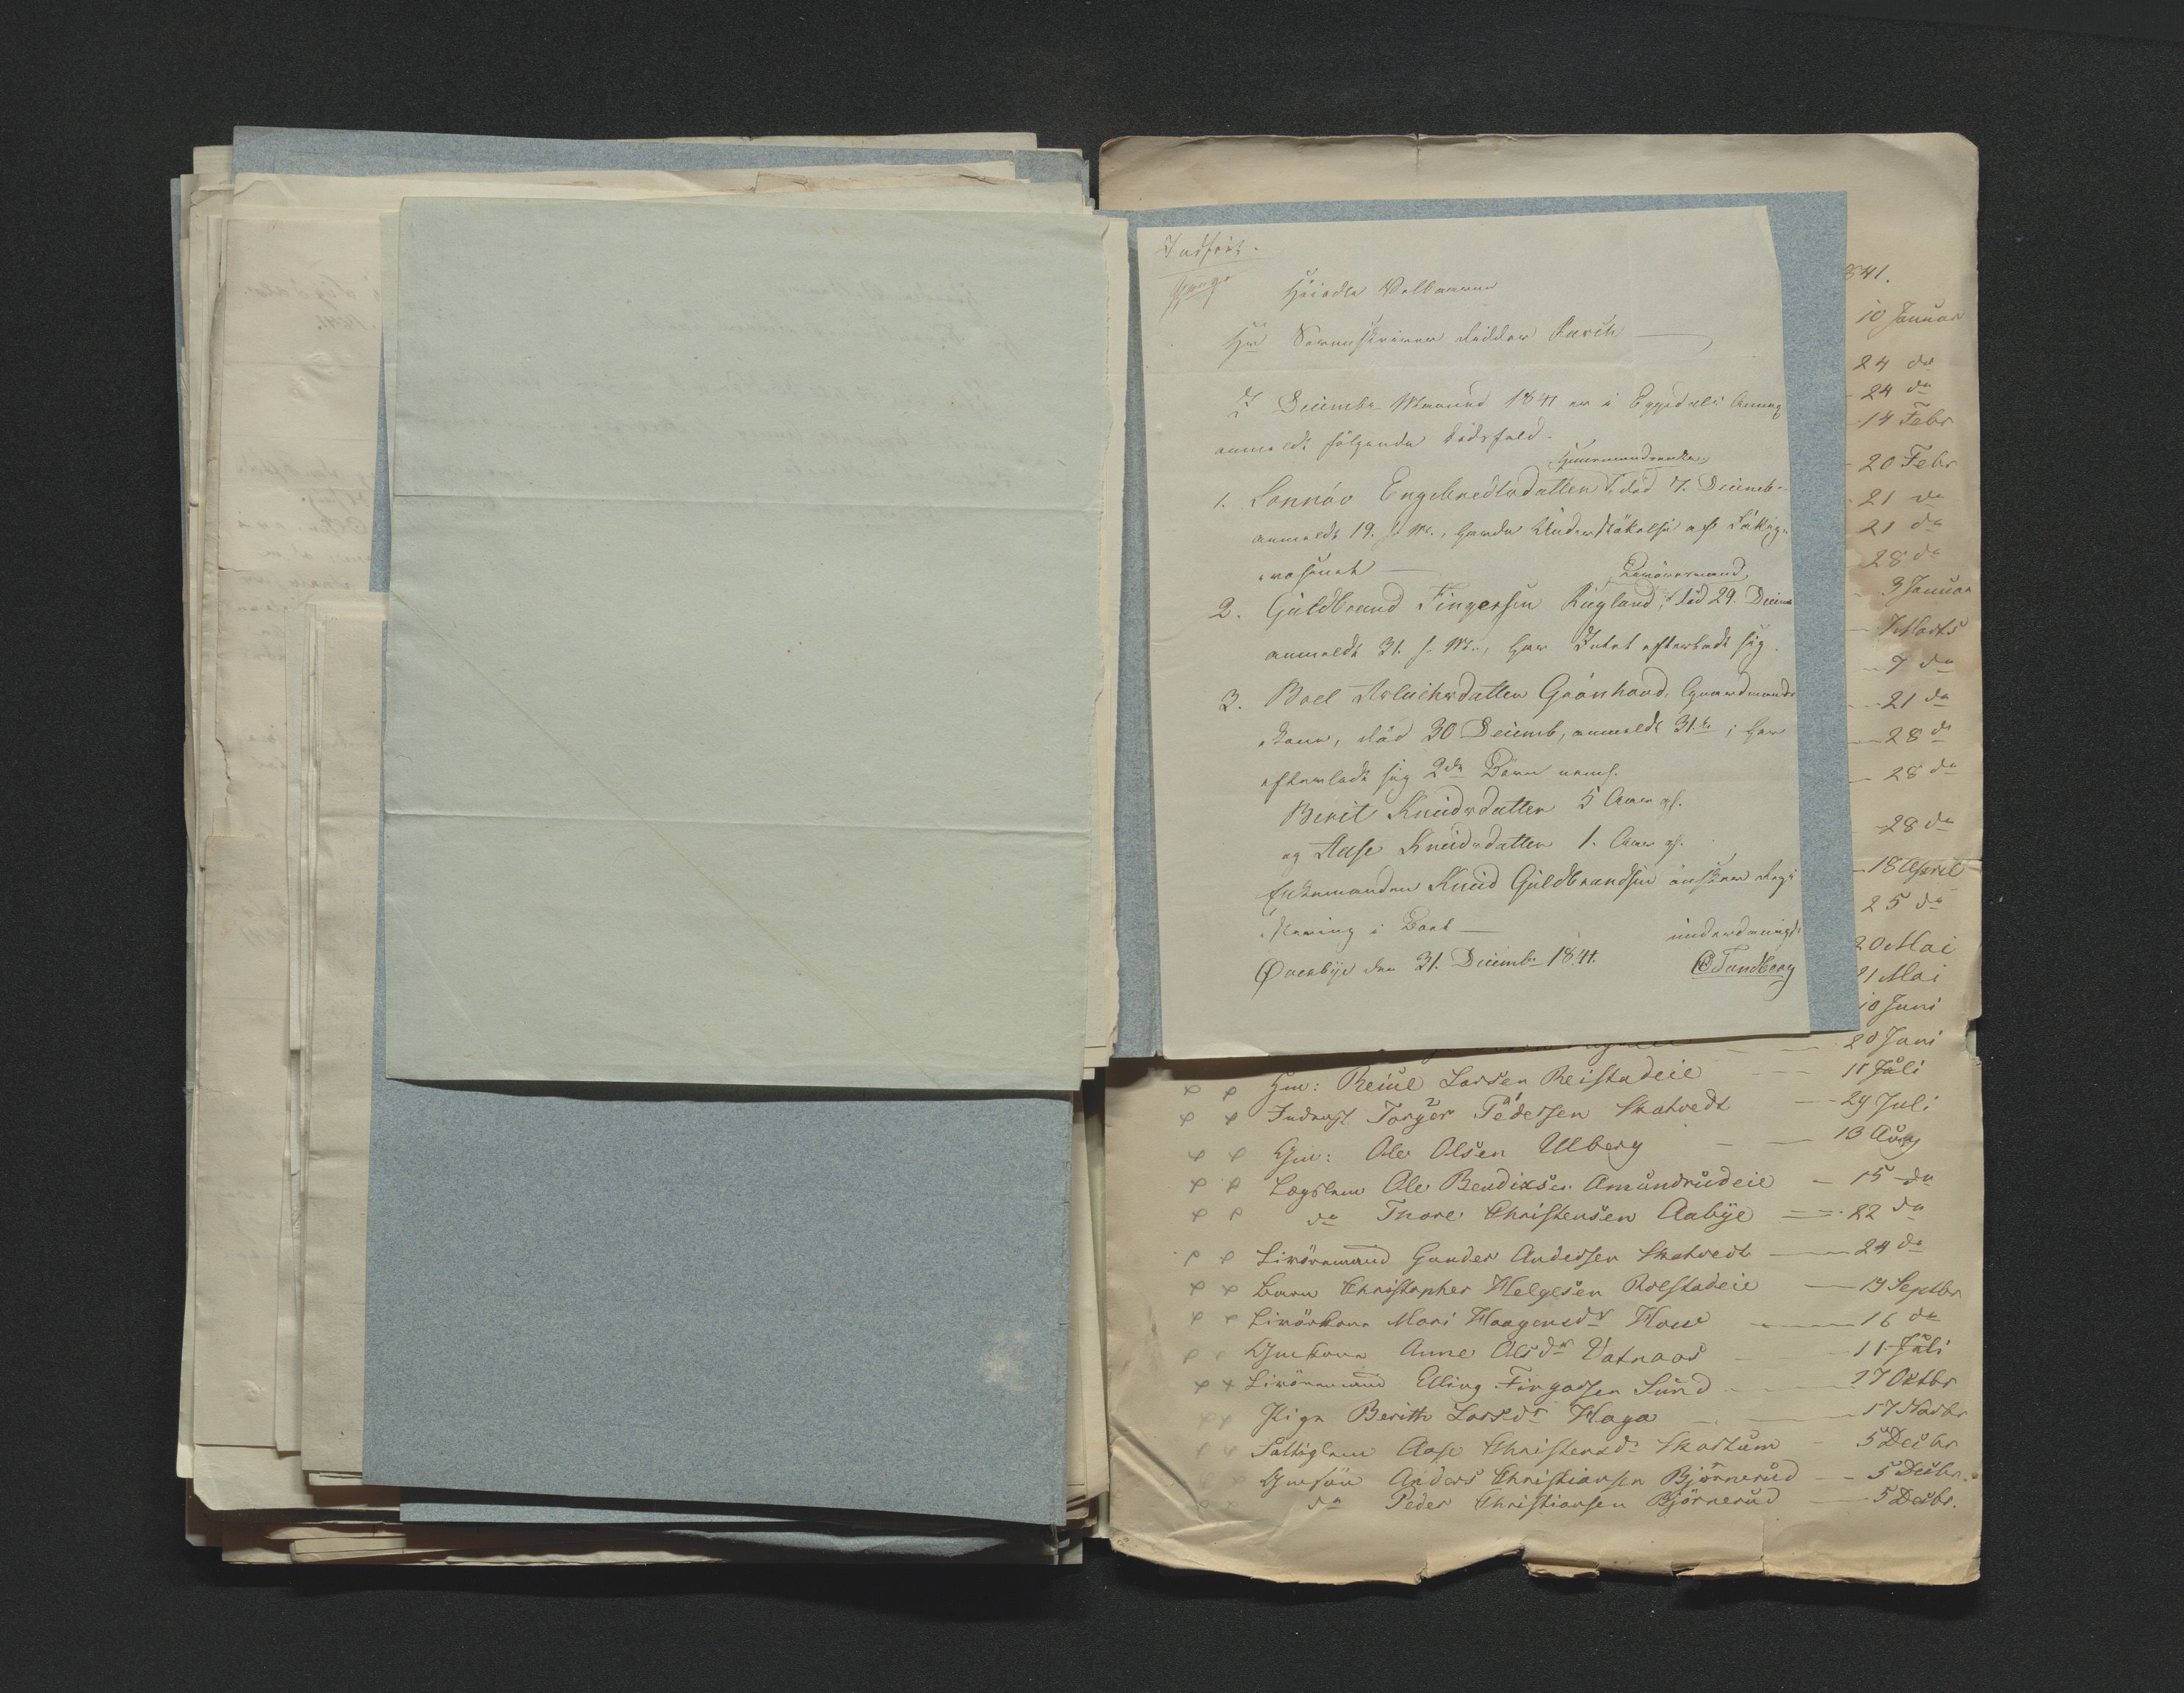 Indført.
Høiædle Velbaarne
Hr Sorenskriver Ridder Busch
I Decembr Maaned 1841 er i Eggedals Annex
anmeldt følgende Dødsfald.
Huusmandsenke
1. Lonnov Engebredtsdatter, død 7. Decemb.
anmeldt 19. s. M., havde Understøttelse af Fattig-
væsenet
Livøresmand
2. Guldbrand Fingersen Rugland, død 29. Decem
anmeldt 31. s. M., har Intet efterladt sig.
3. Boel Aslachsdatter Grønhovd, Gaardmands
kone, død 30 Decemb, anmeldt 31te; har
efterladt sig 2de Børn neml.
Berit Knudsdatter 5 Aar gl.
og Aase Knudsdatter 1. Aar gl.
Enkemanden Knud Guldbrandsen ønsker Regi-
strering i Boet
underdanigst
Øverbye den 31. Decembr 1841.
Tandberg
841.
10 Januar
24 do
24 do
14 Febr
20 Febr
21 do
21 do
28 do
3 Januar
7 Marts
7 do
21 do
28 do
28 do
28 do
18 April
25 do
20 Mai
21 Mai
10 Juni
20 Juni
Hm: Reiul Larsen Reistadeie 11 Juli
Inderst Torger Pedersen Skatvedt 29 Juli
Gm: Ole Olsen Ulberg 13 Aug
Lægslem Ole Bendixsen Amundrudeie 15 do
do Thore Christensen Aabye 22 do
Livøremand Gunder Andersen Skatvedt 24 do
Barn Christopher Helgesen Rolstadeie 13 Septbr
Livørkone Mari Haagensdr Hove 16 do
Gmkone Anne Olsdr Vatnaas 11 Juli
Livøremand Elling Fingarsen Sund 17 Oktbr
Pige Berith Larsdr Haga 17 Novbr
Fattiglem Aase Christensdr Skartum 5 Decbr
Gmsøn Anders Christiansen Bjørnerud 5 Decbr.
do Peder Christiansen Bjørnerud 5 Decbr.